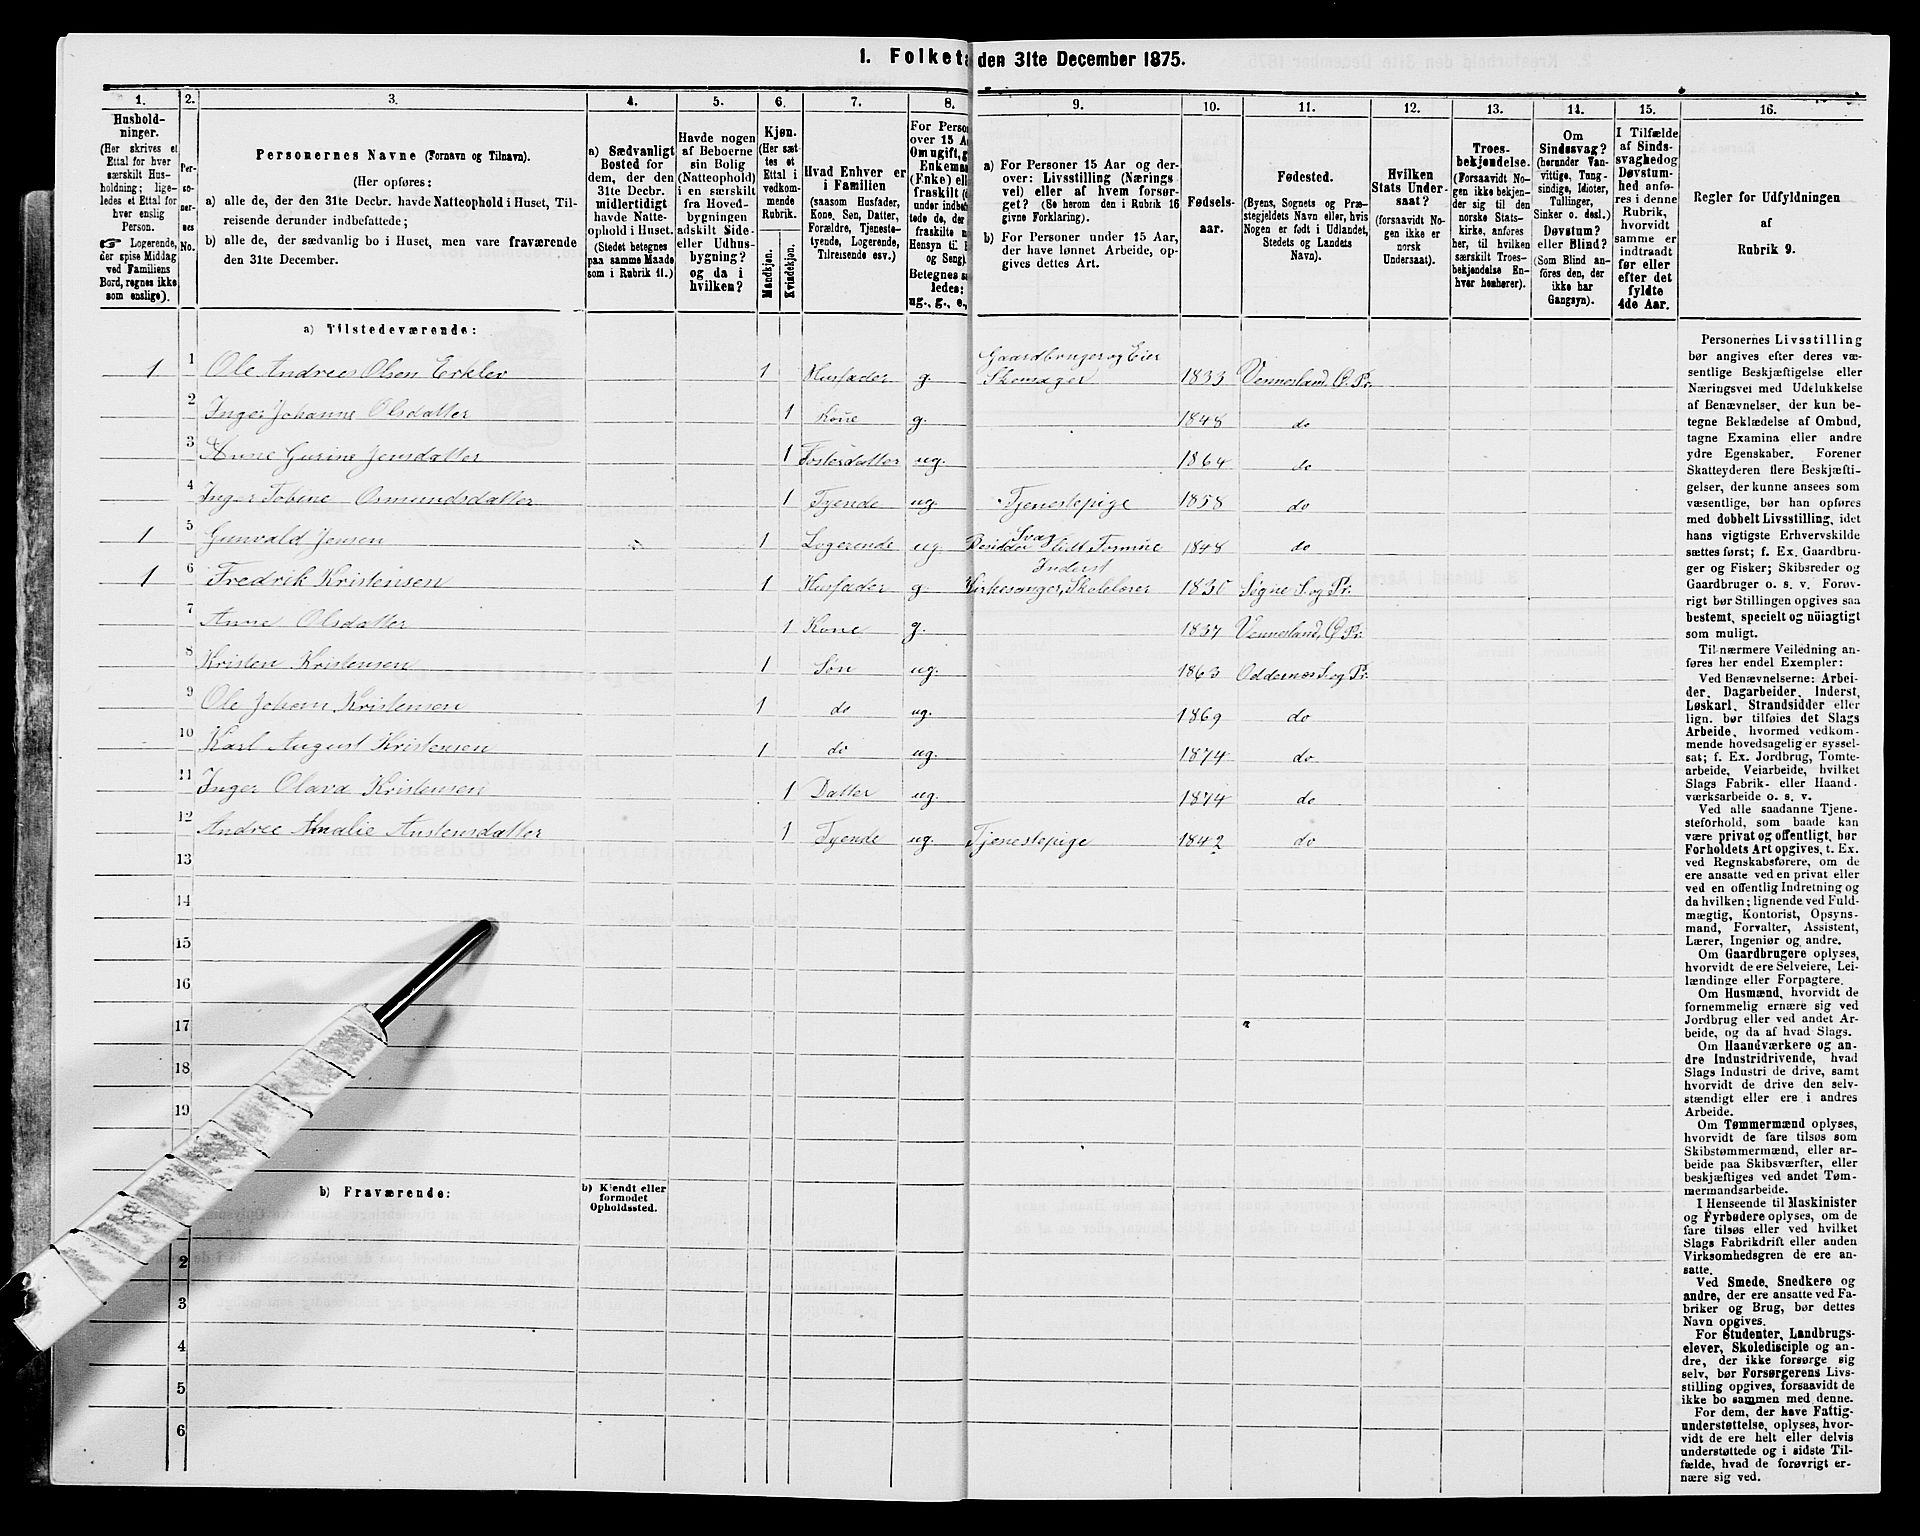 1. Folketæ
den 31te December 1875.
1.
2.
3.
4.
5.
6.
7.
8.
9.
10.
11.
12.
13.
14.
15.
16.
Hushold-
ninger.
(Her skrives et
Ettal for hver
særskilt Hus-
holdning; lige-
ledes et Ettal for
hver enslig
Person.
☞ Logerende,
der spise Middag
ved Familiens
Bord, regnes ikke
som enslige).
Per-
so-
ner-
nes
No.
Personernes Navne (Fornavn og Tilnavn).
(Her opføres:
a) alle de, der den 31te Decbr. havde Natteophold i Huset, Til-
reisende derunder indbefattede;
b) alle de, der sædvanlig bo i Huset, men vare fraværende
den 31te December.
a) Sædvanligt
Bosted for
dem, der den
31te Decbr.
midlertidigt
havde Natte-
ophold i Huset.
(Stedet betegnes
paa samme Maade
som i Rubrik 11.)
Havde nogen
af Beboerne
sin Bolig
(Natteophold)
i en særskilt
fra Hoved-
bygningen
adskilt Side-
eller Udhus-
bygning?
og da i
hvilken?
Kjøn.
(Her sæt-
tes et
Ettal i
vedkom-
mende
Rubrik.
Mandkjøn.
Kvindekjøn.
Hvad Enhver er
i Familien
(saasom Husfader,
Kone, Søn, Datter,
Forældre, Tjeneste-
tyende, Logerende,
Tilreisende osv.)
For Perso
over 15 A
Om ugift, g
Enkeman
(Enke) ell
fraskilt (
under indb
tede de, der
fraskilte
Hensyn til
og Seng).
Betegnes s
ledes:
ug., g., e.,
a) For Personer 15 Aar og der-
over: Livsstilling (Nærings
vei) eller af hvem forsør-
get? (Se herom den i Rubrik 16
givne Forklaring).
b) For Personer under 15 Aar,
der have lønnet Arbeide, op-
gives dettes Art.
Fødsels-
aar.
Fødested.
(Byens, Sognets og Præ-
stegjeldets Navn eller, hvis
Nogen er født i Udlandet,
Stedets og Landets
Navn).
Hvilken
Stats Under-
saat?
(forsaavidt No-
gen ikke er
norsk
Undersaat).
Troes-
bekjendelse.
(Forsaavidt No-
gen ikke bekjen-
der sig til den
norske Stats-
kirke, anføres
her, til hvilken
særskilt Troes-
bekjendelse En-
hver henhører).
Om
Sindssvag?
(herunder Van-
vittige, Tung-
sindige, Idioter,
Tullinger,
Sinker o. desl.)
Døvstum?
eller Blind?
(Som Blind an-
føres den, der
ikke har
Gangsyn).
I Tilfælde
af Sinds-
svaghed og
Døvstum-
hed anfø-
res i denne
Rubrik,
hvorvidt
samme er
indtraadt
før eller
efter det
fyldte
4de Aar.
Regler for Udfyldningen
af
Rubrik 9.
a) Tilstedeværende:
1 1 Ole Andreas Olsen Erklev 1 Husfader g. Gaardbruger og Eier Skomager 1833 Vennesland, Ø. Pr.
2 Inger Johanne Olsdatter 1 Kone g. 1848 do
3 Anne Gurine Jensdatter 1 Fosterdatter ug. 1864 do
4 Inger Tobine Osmundsdatter 1 Tyende ug. Tjenestepige 1858 do
1 5 Gunvald Jensen 1 Logerende ug. Svag Besidder lidt Formue 1848 do
1 6 Fredrik Kristensen 1 Husfader g. Inderst Kirkesanger, Skolelærer 1830 Søgne S. og Pr.
7 Anne Olsdatter 1 Kone g. 1837 Vennesland, Ø Pr.
8 Kristen Kristensen 1 Søn ug. 1863 Oddernes S. og Pr.
9 Ole Johan Kristensen 1 do ug. 1869 do
10 Karl August Kristensen 1 do ug. 1874 do
11 Inger Olava Kristensen 1 Datter ug. 1874 do
12 Andree Amalie Anstensdatter 1 Tyende ug. Tjenestepige 1842 do
13
14
15
16
17
18
19
b) Fraværende:
b) Kjendt eller
formodet
Opholdssted.
2
3
4
5
6
Personernes Livsstilling
bør angives efter deres væ-
sentlige Beskjæftigelse eller
Næringsvei med Udelukkelse
af Benævnelser, der kun be-
tegne Beklædelse af Ombud,
tagne Examina eller andre
ydre Egenskaber. Forener
Skatteyderen flere Beskjæfti-
gelser, der kunne ansees som
væsentlige, bør han opføres
med dobbelt Livsstilling, idet
hans vigtigste Erhvervskilde
sættes først; f. Ex. Gaardbru-
ger og Fisker; Skibsreder og
Gaardbruger o. s. v. Forøv-
rigt bør Stillingen opgives saa
bestemt, specielt og nöiagtigt
som muligt.
Til nærmere Veiledning an-
føres her endel Exempler:
Ved Benævnelserne: Arbei-
der, Dagarbeider, Inderst,
Løskarl, Strandsidder eller
lign. bør tilføies det Slags
Arbeide, hvormed vedkom-
mende hovedsagelig er syssel-
sat; f. Ex. Jordbrug, Tomte-
arbeide, Veiarbeide, hvilket
Slags Fabrik- eller Haand-
værksarbeide o. s. v.
Ved alle saadanne Tjene-
steforhold, som baade kan
være privat og offentligt, bør
Forholdets Art opgives, t. Ex.
ved Regnskabsførere, om de
ere ansatte ved en privat eller
ved en offentlig Indretning og
da hvilken; lignende ved Fuld-
mægtig, Kontorist, Opsyns-
mand, Forvalter, Assistent,
Lærer, Ingeniør og andre.
Om Gaardbrugere oplyses,
hvorvidt de ere Selveiere, Lei-
lændinge eller Forpagtere.
Om Husmænd, hvorvidt de
fornemmelig ernære sig ved
Jordbrug eller ved andet Ar-
beide, og da af hvad Slags.
Om Haandværkere og an-
dre Industridrivende, hvad
Slags Industri de drive, samt
hvorvidt de drive den selv-
stændigt eller ere i andres
Arbeide.
Om Tømmermænd oplyses,
hvorvidt de fare tilsøs som
Skibstømmermænd, eller ar-
beide paa Skibsværfter, eller
beskjæftiges ved andet Tøm-
mermandsarbeide.
I Henseende til Maskinister
og Fyrbødere oplyses, om de
fare tilsøs eller ved hvilket
Slags Fabrikdrift eller anden
Virksomhedsgren de ere an-
satte.
Ved Smede, Snedkere og
andre, der ere ansatte ved Fa-
briker og Brug, bør dettes
Navn opgives.
For Studenter, Landbrugs-
elever, Skoledisciple og an-
dre, der ikke forsørge sig
selv, bør Forsørgerens Livs-
stilling opgives, forsaavidt de
ikke bo sammen med denne.
For dem, der have Fattig-
understøttelse, oplyses, hvor-
vidt de ere helt eller delvis
understøttede og i sidste Til-
fælde, hvad de forøvrigt er-
nære sig ved.